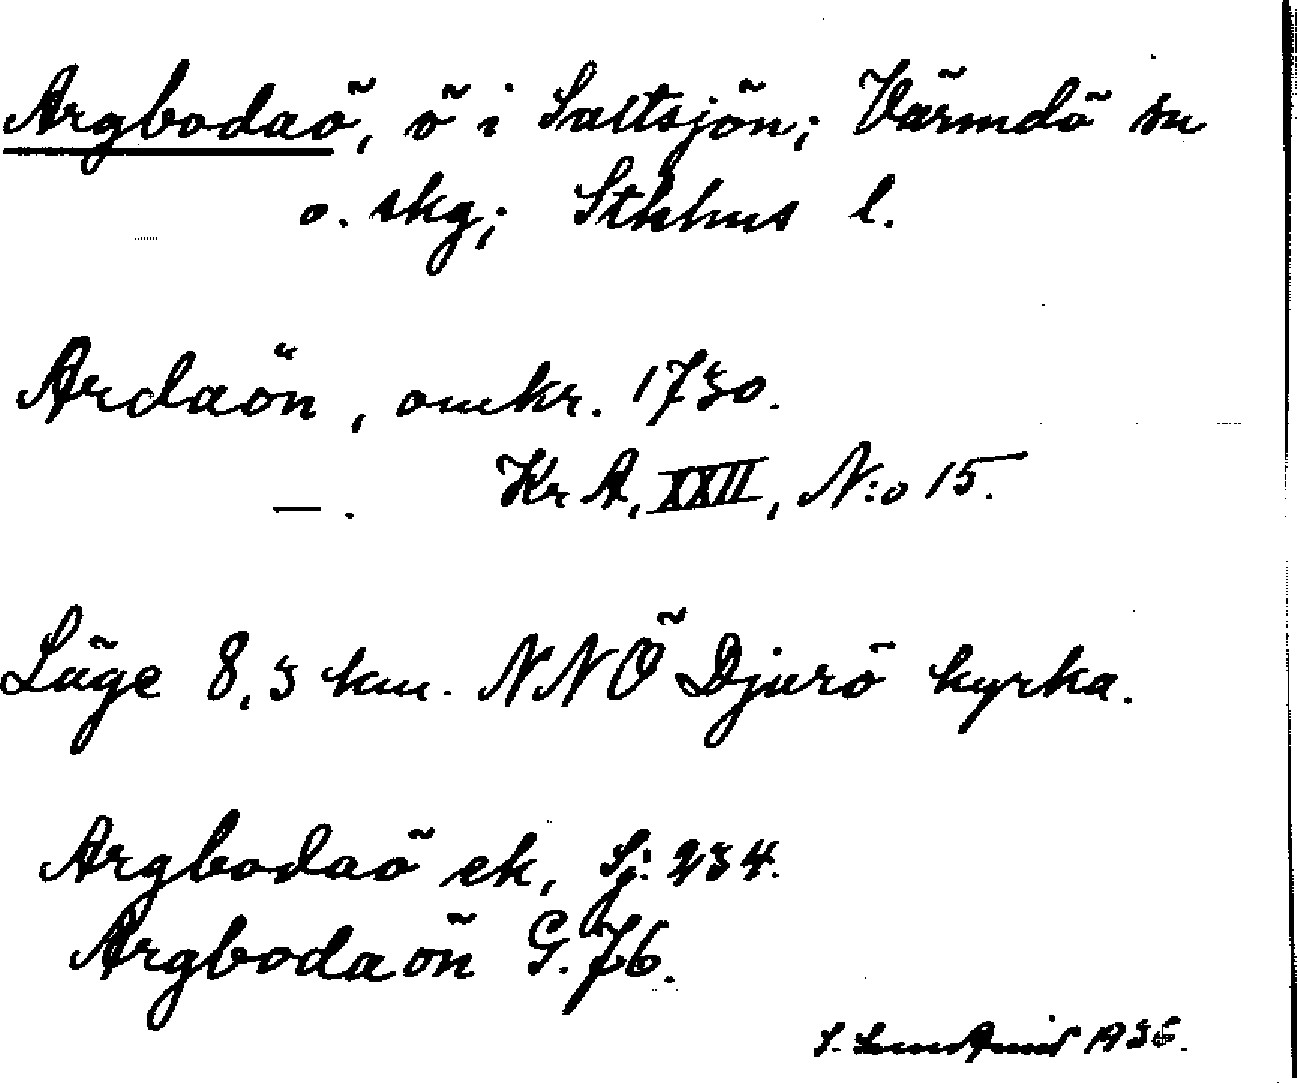 Argbodaö, ö i Saltsjön; Värmdö sn
o. skg; Sthlms l.
Ardaön, omkr. 1730.
— . Kr A, XXII, N:o 15.
Läge 8,3 km. NNÖ Djurö kyrka.
Argbodaö ek, Sj: 234.
Argbodaön G. 76.
1936.